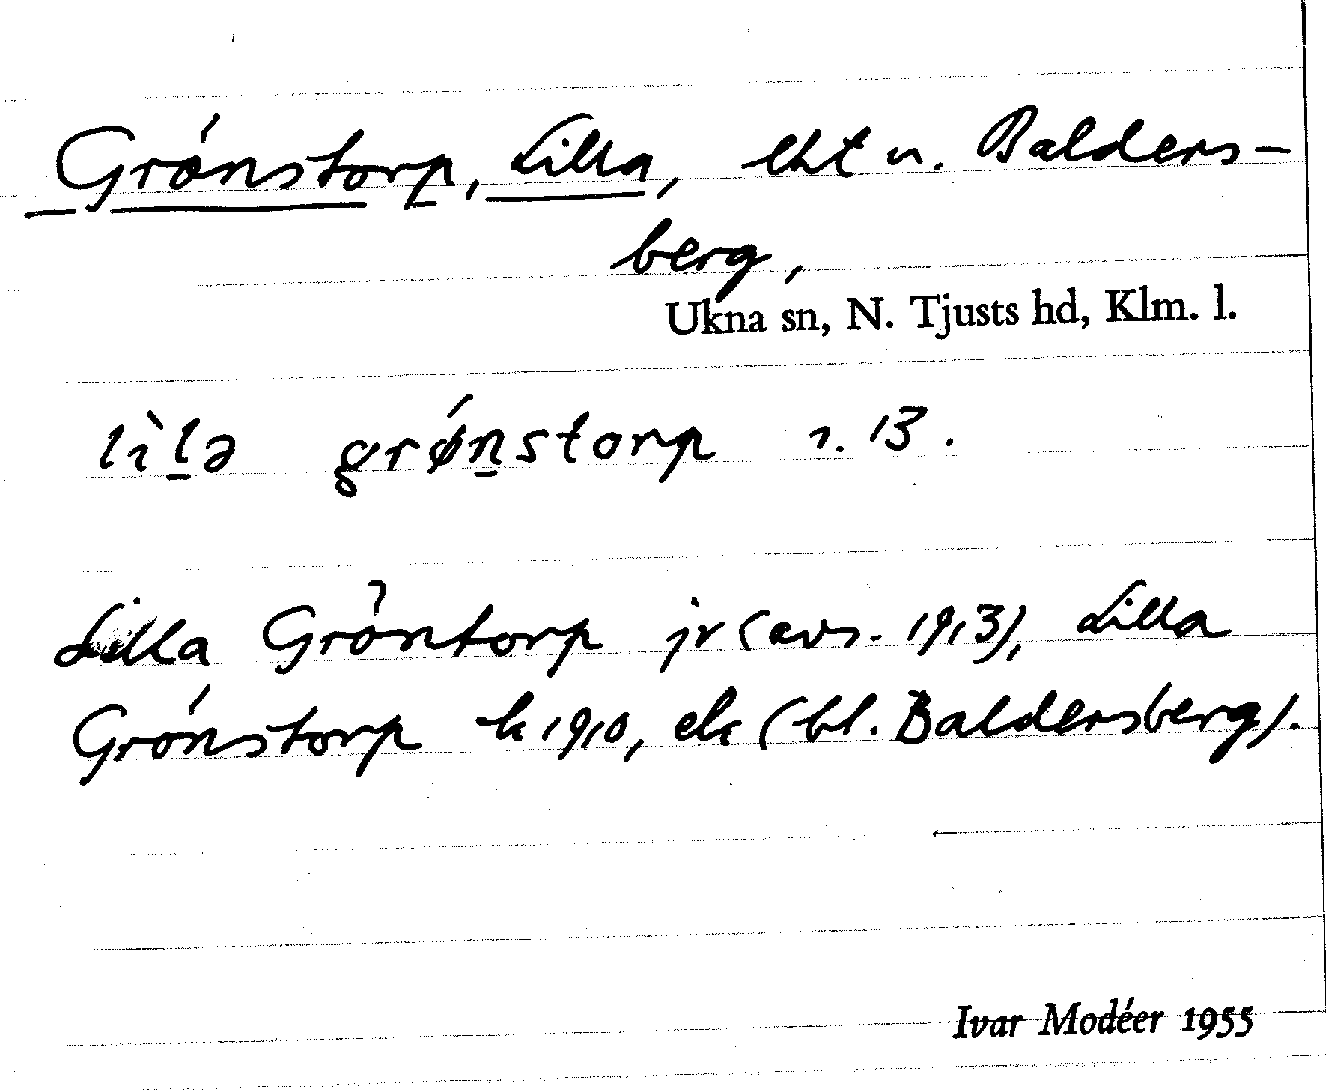 Grönstorp, Lilla, lht u. Balders-
berg,
Ukna sn, N. Tjusts hd, Klm. l.
lìla grǿnstorp 1. 13.
Lilla Gröntorp jr (avs. 1913), Lilla
Grönstorp k 1910, ek (bl. Baldersberg).
Ivar Modéer 1955